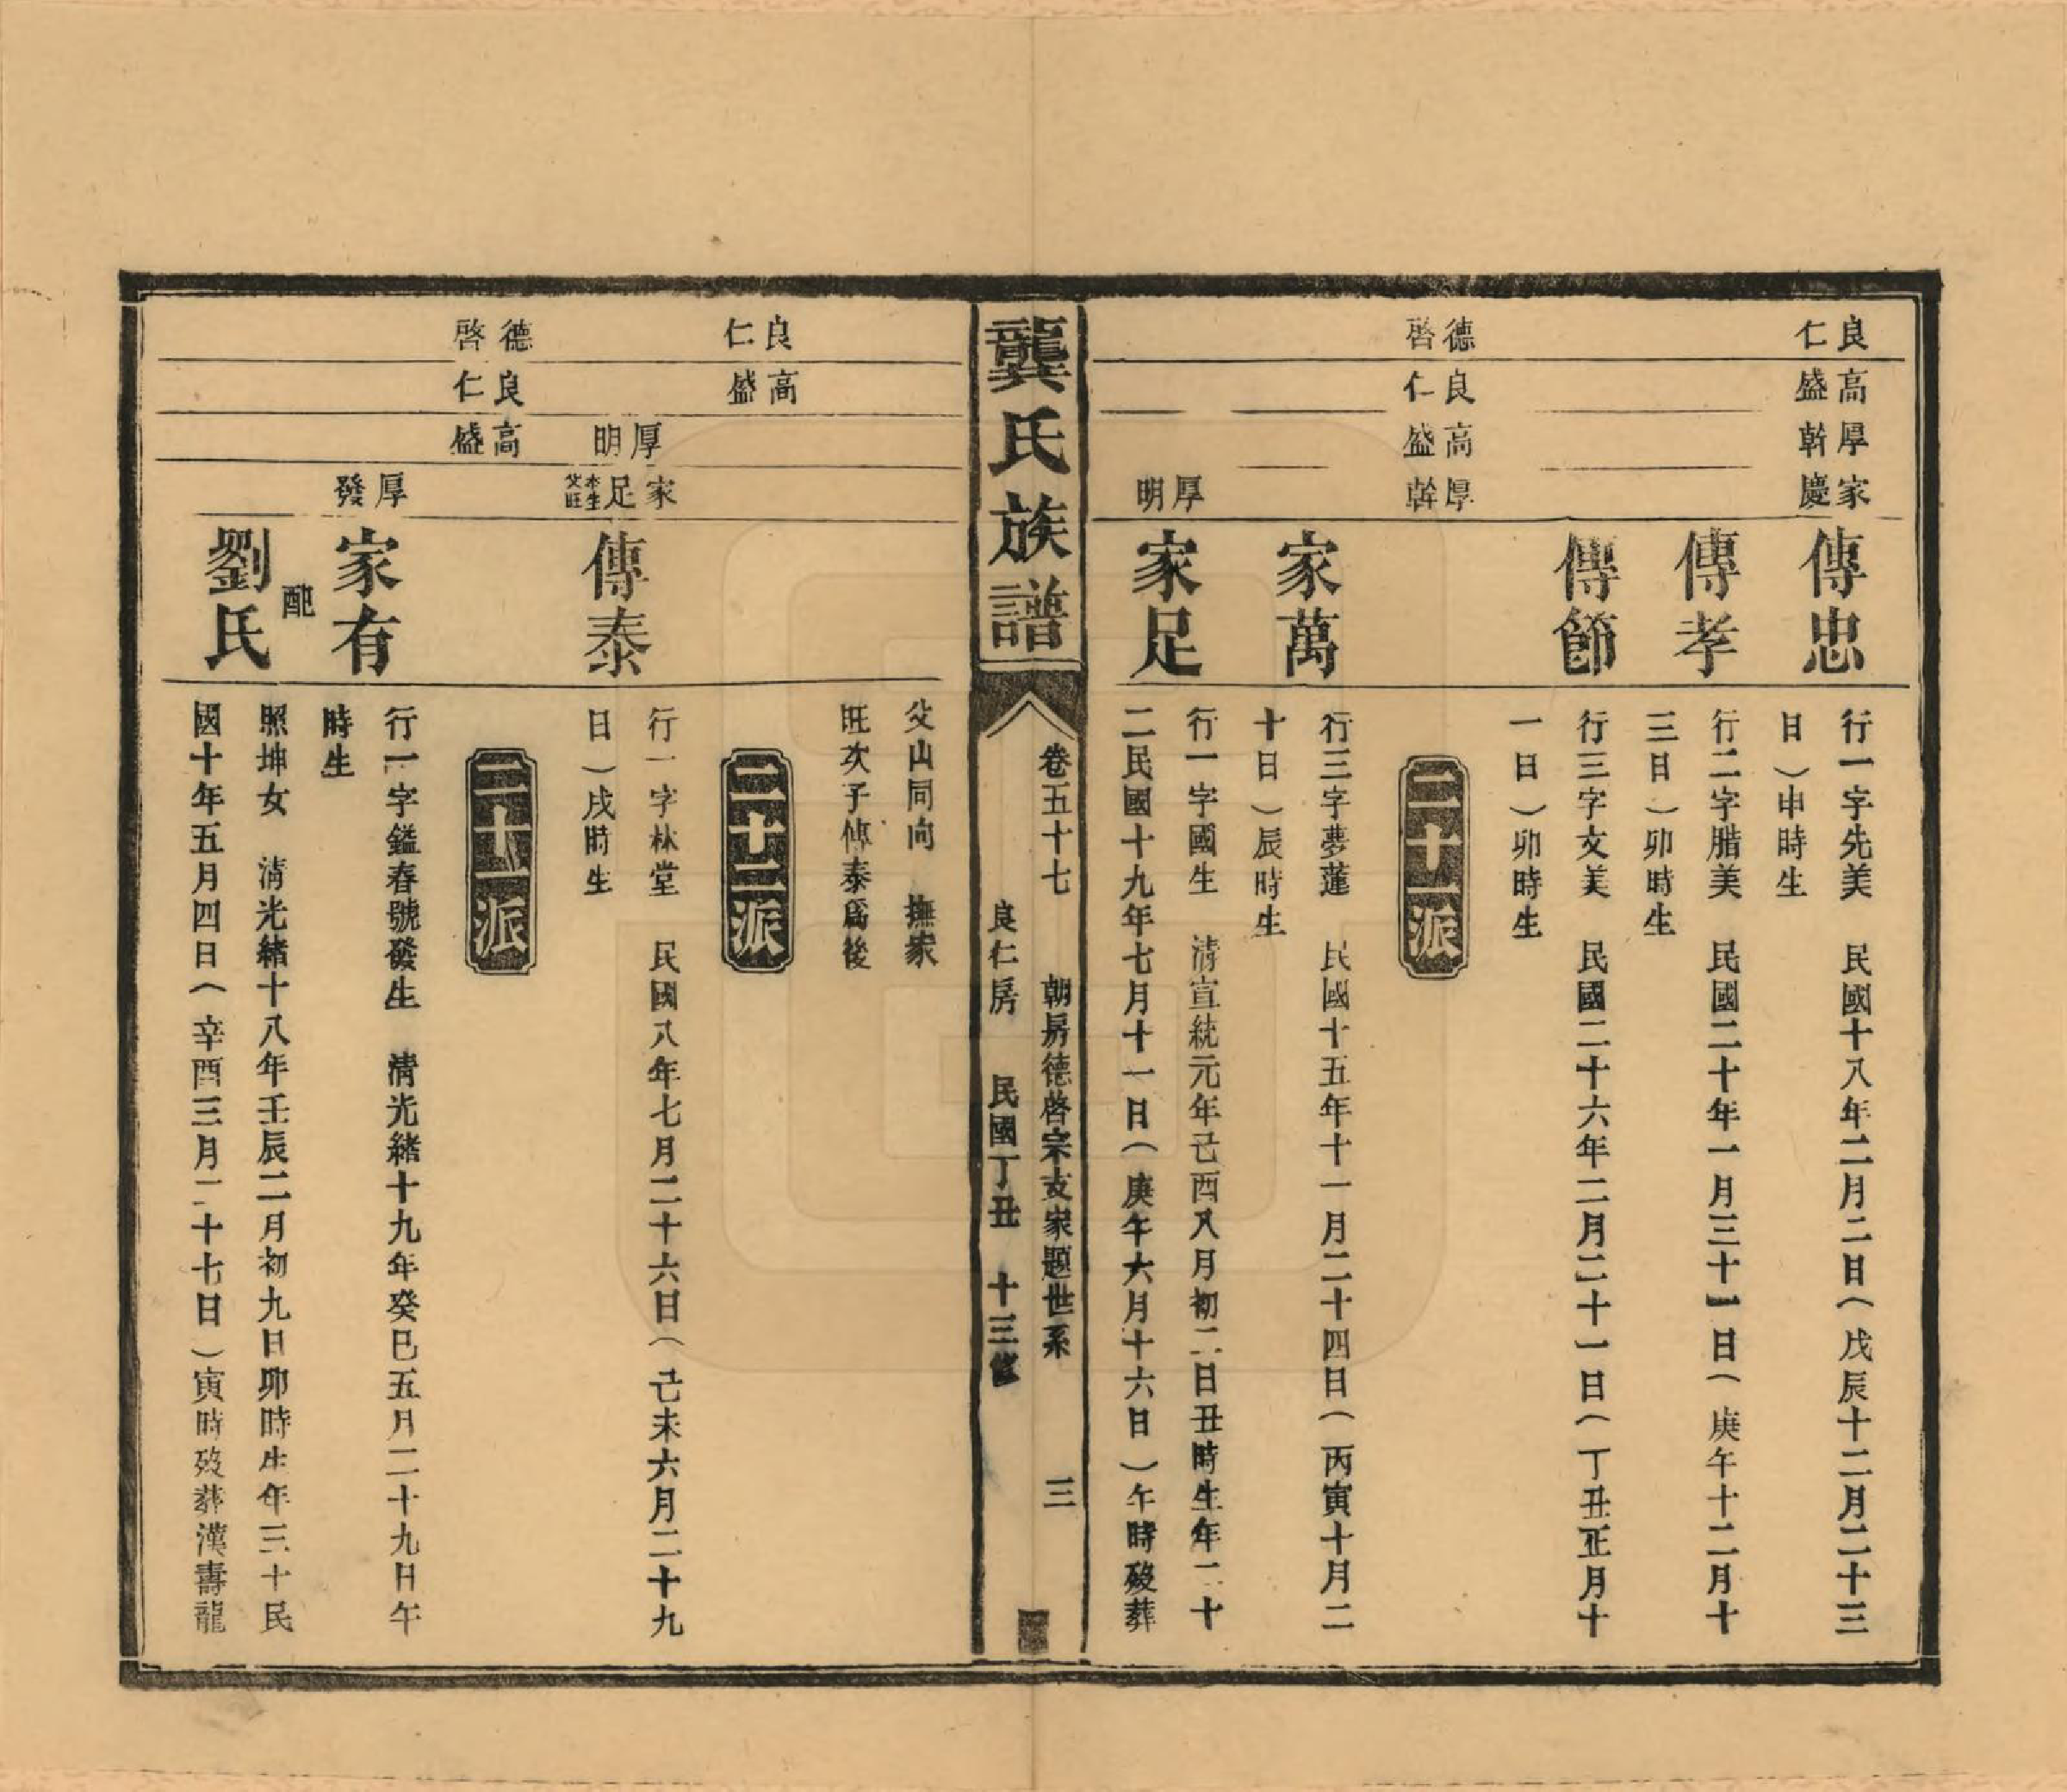 良仁
高盛
厚幹
家慶
傳忠
行一字先美　民國十八年二月二日（戊辰十二月二十三
日）申時生
傳孝
行二字腊美　民國二十年一月三十一日（庚午十二月十
三日）卯時生
傳節
行三字文美　民國二十六年二月二十一日（丁丑正月十
一日）卯時生
德啓
良仁
高盛
厚幹
二十一派
家萬
行三字夢蓮　民國十五年十一月二十四日（丙寅十月二
十日）辰時生
厚明
家足
行一字國生　清宣統元年己酉八月初二日丑時生年二十
二民國十九年七月十一日（庚午六月十六日）午時歿葬
龔氏族譜
卷五十七　朝房德啓宗支家題世系　三
良仁房　民國丁丑　十三修
父山同向　撫家
旺次子傳泰爲後
良仁
高盛
二十二派
厚明
家足本生父旺
傳泰
行一字林堂　民國八年七月二十六日（己未六月二十九
日）戌時生
德啓
良仁
高盛
二十一派
厚發
家有
行一字鎰春號發生　清光緒十九年癸巳五月二十九日午
時生
配
劉氏
照坤女　清光緒十八年壬辰二月初九日卯時生年三十民
國十年五月四日（辛酉三月二十七日）寅時歿葬漢壽龍